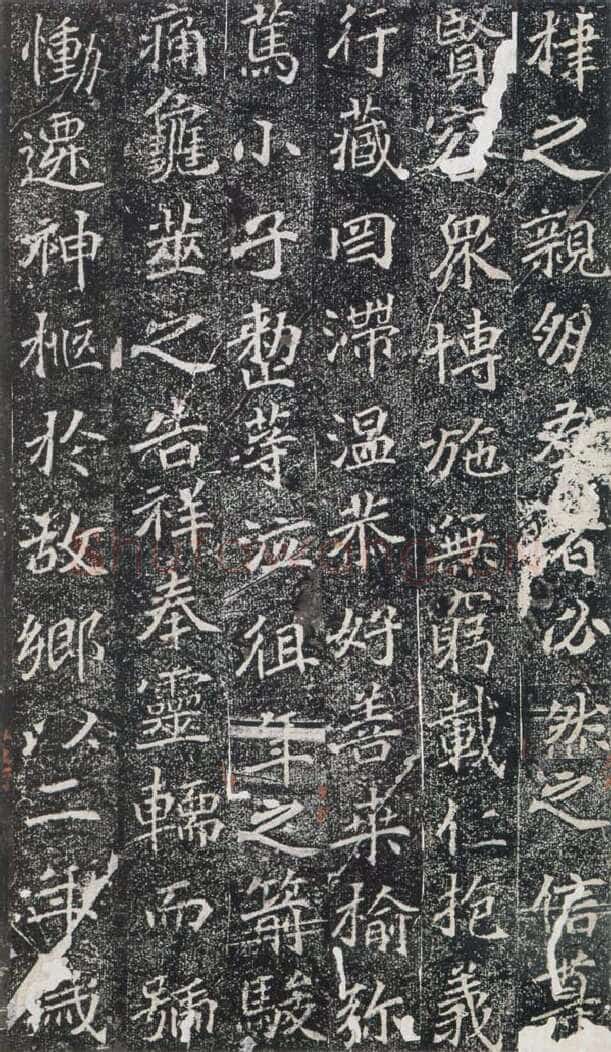 棣之親朋友者必然之信尊
賢容衆博施無窮載仁抱義
行藏罔滯温恭好善桑榆弥
篤小子整等泣徂年之箭駿
痛龜筮之告祥奉靈轜而號
慟遷神柩於故鄉以二年歲